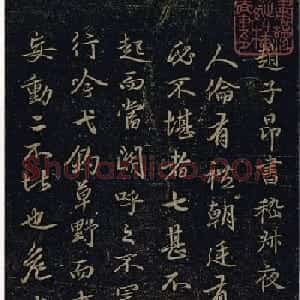 趙子昂書嵇叔夜
人倫有禮朝廷有
必不堪者七甚不
起而當關呼之不置
行吟弋釣草野而
妄動二不堪也危
shufaziliao.com